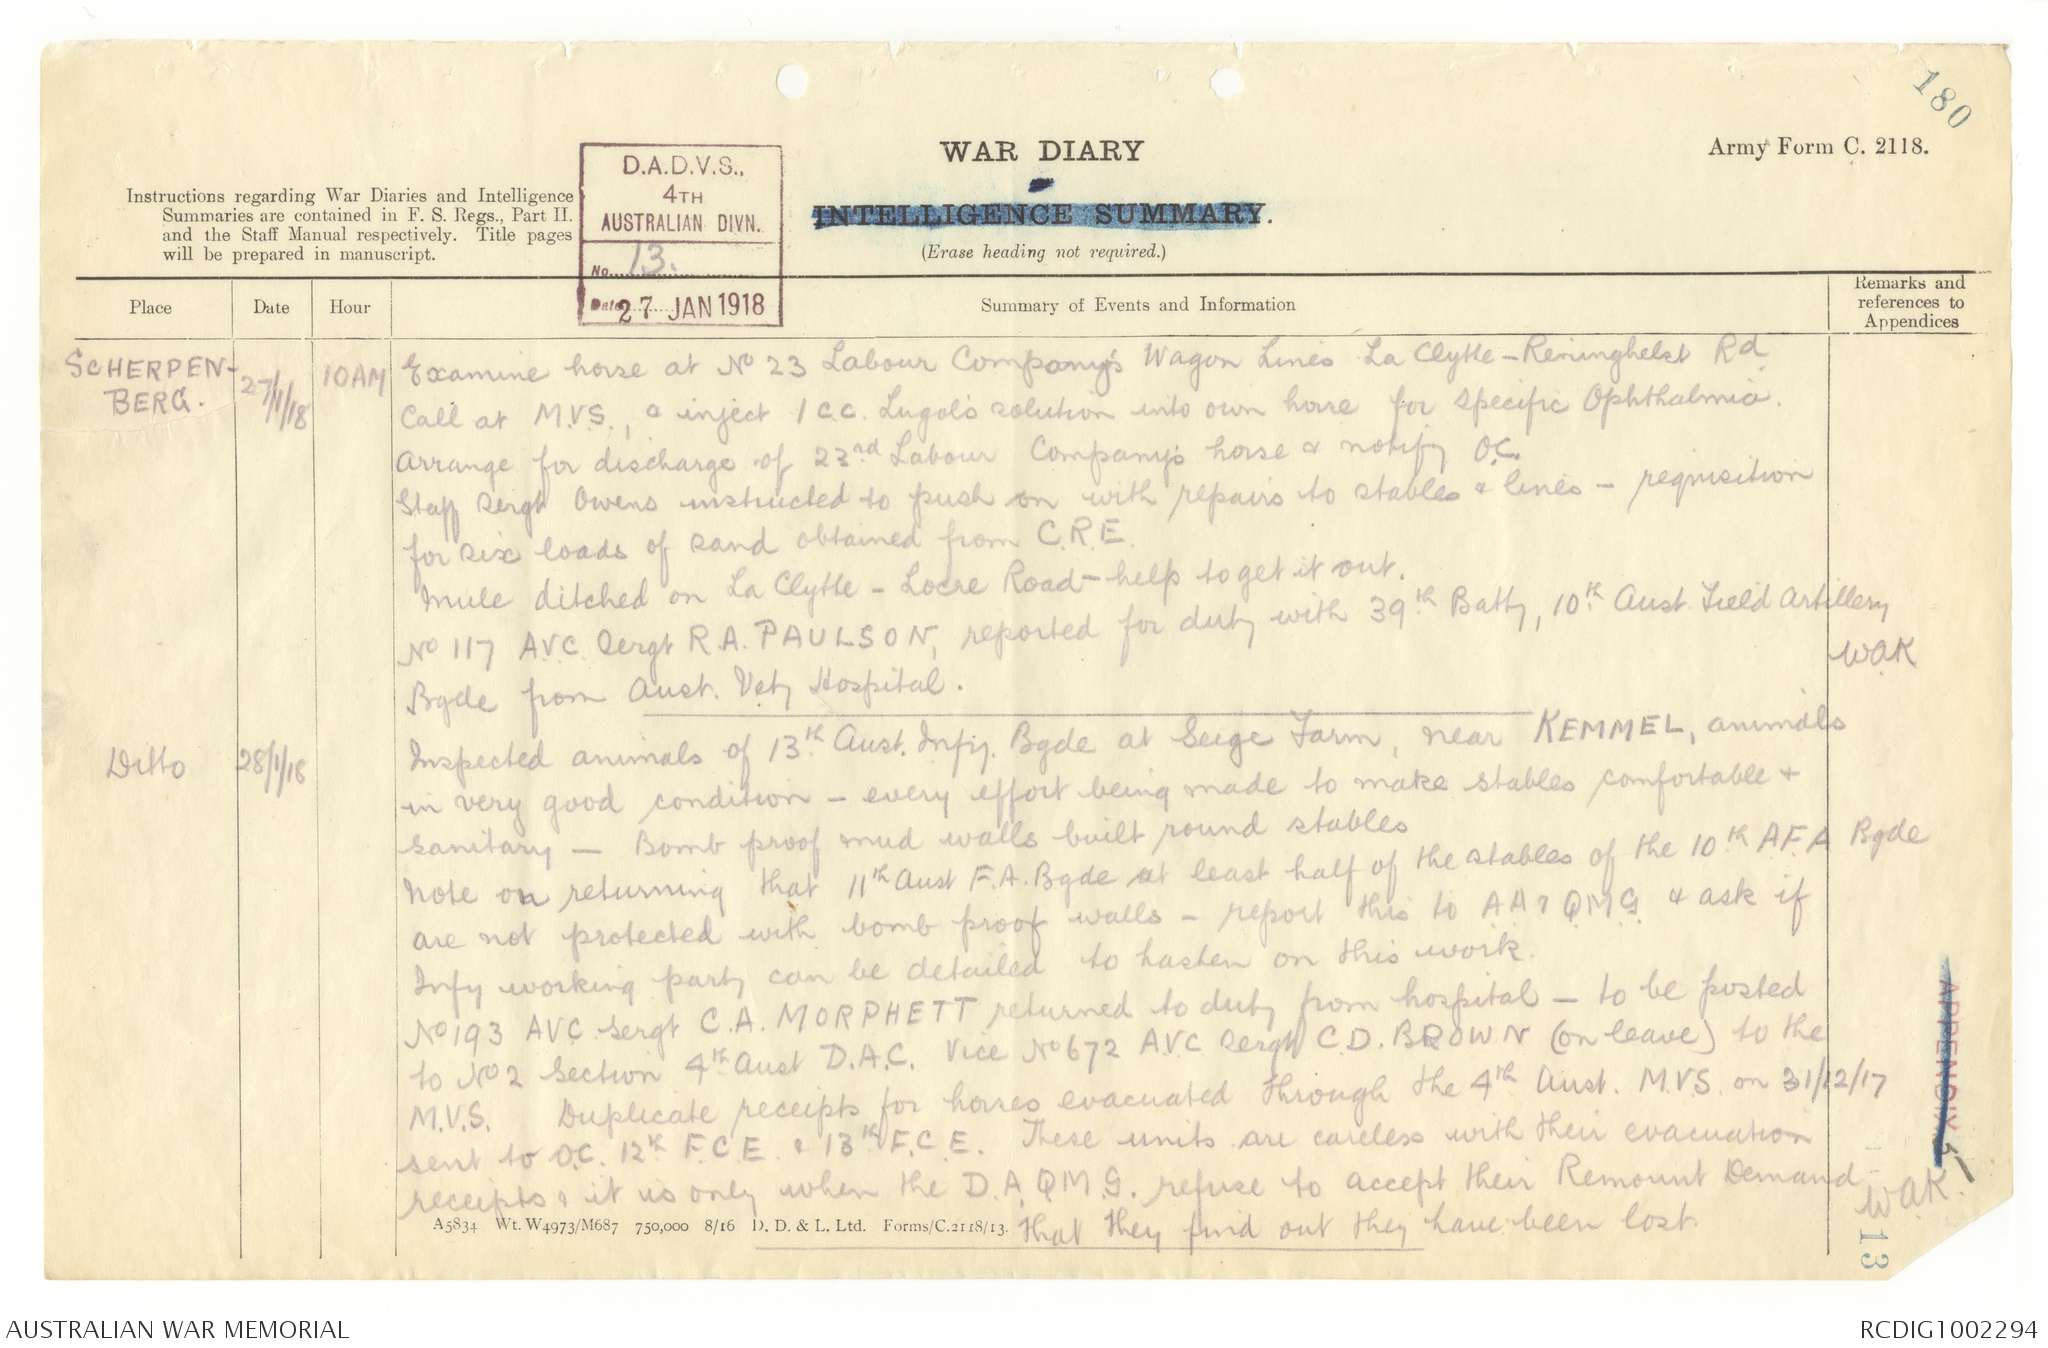 180
WAR DIARY
Army Form C. 2118.
INTELLIGENCE SUMMARY.
(Erase heading not required.)
Instructions regarding War Diaries and Intelligence
Summaries are contained in F. S. Regs., Part II.
and the Staff Manual respectively. Title pages
will be prepared in manuscript.
D.A.D.V.S.,
4TH
AUSTRALIAN DIVN.
No. 13.
Date 27 JAN 1918
Place
Date
Hour
Summary of Events and Information
Remarks and
references to
Appendices
SCHERPEN-
BERG.
27/1/18
10AM
Examine horse at No 23 Labour Company's Wagon Lines La Clytte - Reninghelst Rd
Call at M.V.S., & inject 1 c.c. Lugol's solution into own horse for specific Ophthalmia.
Arrange for discharge of 23rd Labour Company's horse & notify O.C.
Staff Sergt Owens instructed to push on with repairs to stables & lines - requisition
for six loads of sand obtained from C.R.E.
Mule ditched on La Clytte - Locre Road - help to get it out.
No 117 A.V.C. Sergt R.A. PAULSON, reported for duty with 39th Batty, 10th Aust Field Artillery
Bgde from Aust. Vety Hospital.
WAK
Ditto
28/1/18
Inspected animals of 13th Aust. Infy. Bgde at Seige Farm, near KEMMEL, animals
in very good condition - every effort being made to make stables comfortable &
sanitary - Bomb proof mud walls built round stables
Note on returning that 11th Aust F.A. Bgde at least half of the stables of the 10th A.F.A Bgde
are not protected with bomb proof walls - report this to AA & QMG & ask if
Infy working party can be detailed to hasten on this work.
No 193 AVC Sergt C.A. MORPHETT returned to duty from hospital - to be posted
to No 2 Section 4th Aust D.A.C. Vice No 672 A.V.C Sergt C.D. BROWN (on leave) to the
M.V.S. Duplicate receipts for horses evacuated through the 4th Aust. M.V.S. on 31/12/17
sent to O.C. 12th F.C.E. & 13th F.C.E. These units are careless with their evacuation
receipts & it is only when the D.A.Q.M.G. refuse to accept their Remount Demand
that they find out they have been lost.
WAK.
APPENDIX
13
A5834 Wt. W4973/M687 750,000 8/16 D. D. & L. Ltd. Forms/C.2118/13.
AUSTRALIAN WAR MEMORIAL
RCDIG1002294